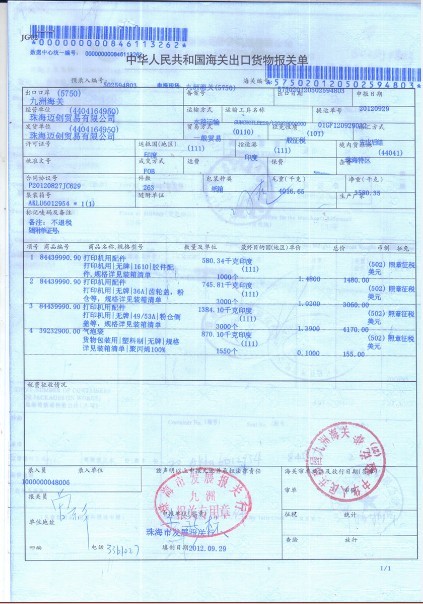 *000000000846113262*
数据中心统一编号: 000000000846113262
中华人民共和国海关出口货物报关单
预录入编号: 502594803
九洲海关(5750)
海关编号:
*575020120502594803*
575020120502594803
出口口岸 (5750)
九洲海关
备案号
出口日期
申报日期
20120929
经营单位 (4404164950)
珠海迈创贸易有限公司
运输方式
运输工具名称
提运单号
发货单位 (4404164950)
珠海迈创贸易有限公司
贸易方式 (0110)
一般贸易
征免性质 (101)
一般征税
结汇方式
许可证号
运抵国(地区) (111)
印度
指运港 (111)
印度
境内货源地 (44041)
珠海特区
批准文号
成交方式
FOB
运费
保费
杂费
合同协议号
P20120827JC629
件数
263
包装种类
纸箱
毛重(千克)
4016.65
净重(千克)
3580.35
集装箱号
AKLU6012954 * 1(1)
随附单证
生产厂家
标记唛码及备注
备注: 不退税
随附单证号:
项号 商品编号 商品名称、规格型号 数量及单位 最终目的国(地区) 单价 总价 币制 征免
1 84439990.90 打印机用配件 580.34千克 印度 (502) 照章征税
打印机用|无牌|1610|胶件配件,规格详见装箱清单 (111) 美元
1000个 1.4800 1480.00
2 84439990.90 打印机用配件 745.81千克 印度 (502) 照章征税
打印机用|无牌|36A|齿轮盖,粉仓等,规格详见装箱清单 (111) 美元
3000个 1.0200 3060.00
3 84439990.90 打印机用配件 1384.10千克 印度 (502) 照章征税
打印机用|无牌|49/53A|粉仓侧盖等,规格详见装箱清单 (111) 美元
3000个 1.3900 4170.00
4 39232900.00 气泡袋 870.10千克 印度 (502) 照章征税
货物包装用|塑料制|无牌|规格详见装箱清单|聚丙烯100% (111) 美元
1550个 0.1000 155.00
税费征收情况
录入员 录入单位
0000000048006
兹声明以上申报无讹并承担法律责任
海关审单批注及放行日期(签章)
审单
报关员
九洲
报关专用章
九洲海关
征税
统计
单位地址
珠海市发展
查验
放行
邮编
电话 3361027
填制日期 2012.09.29
1/1